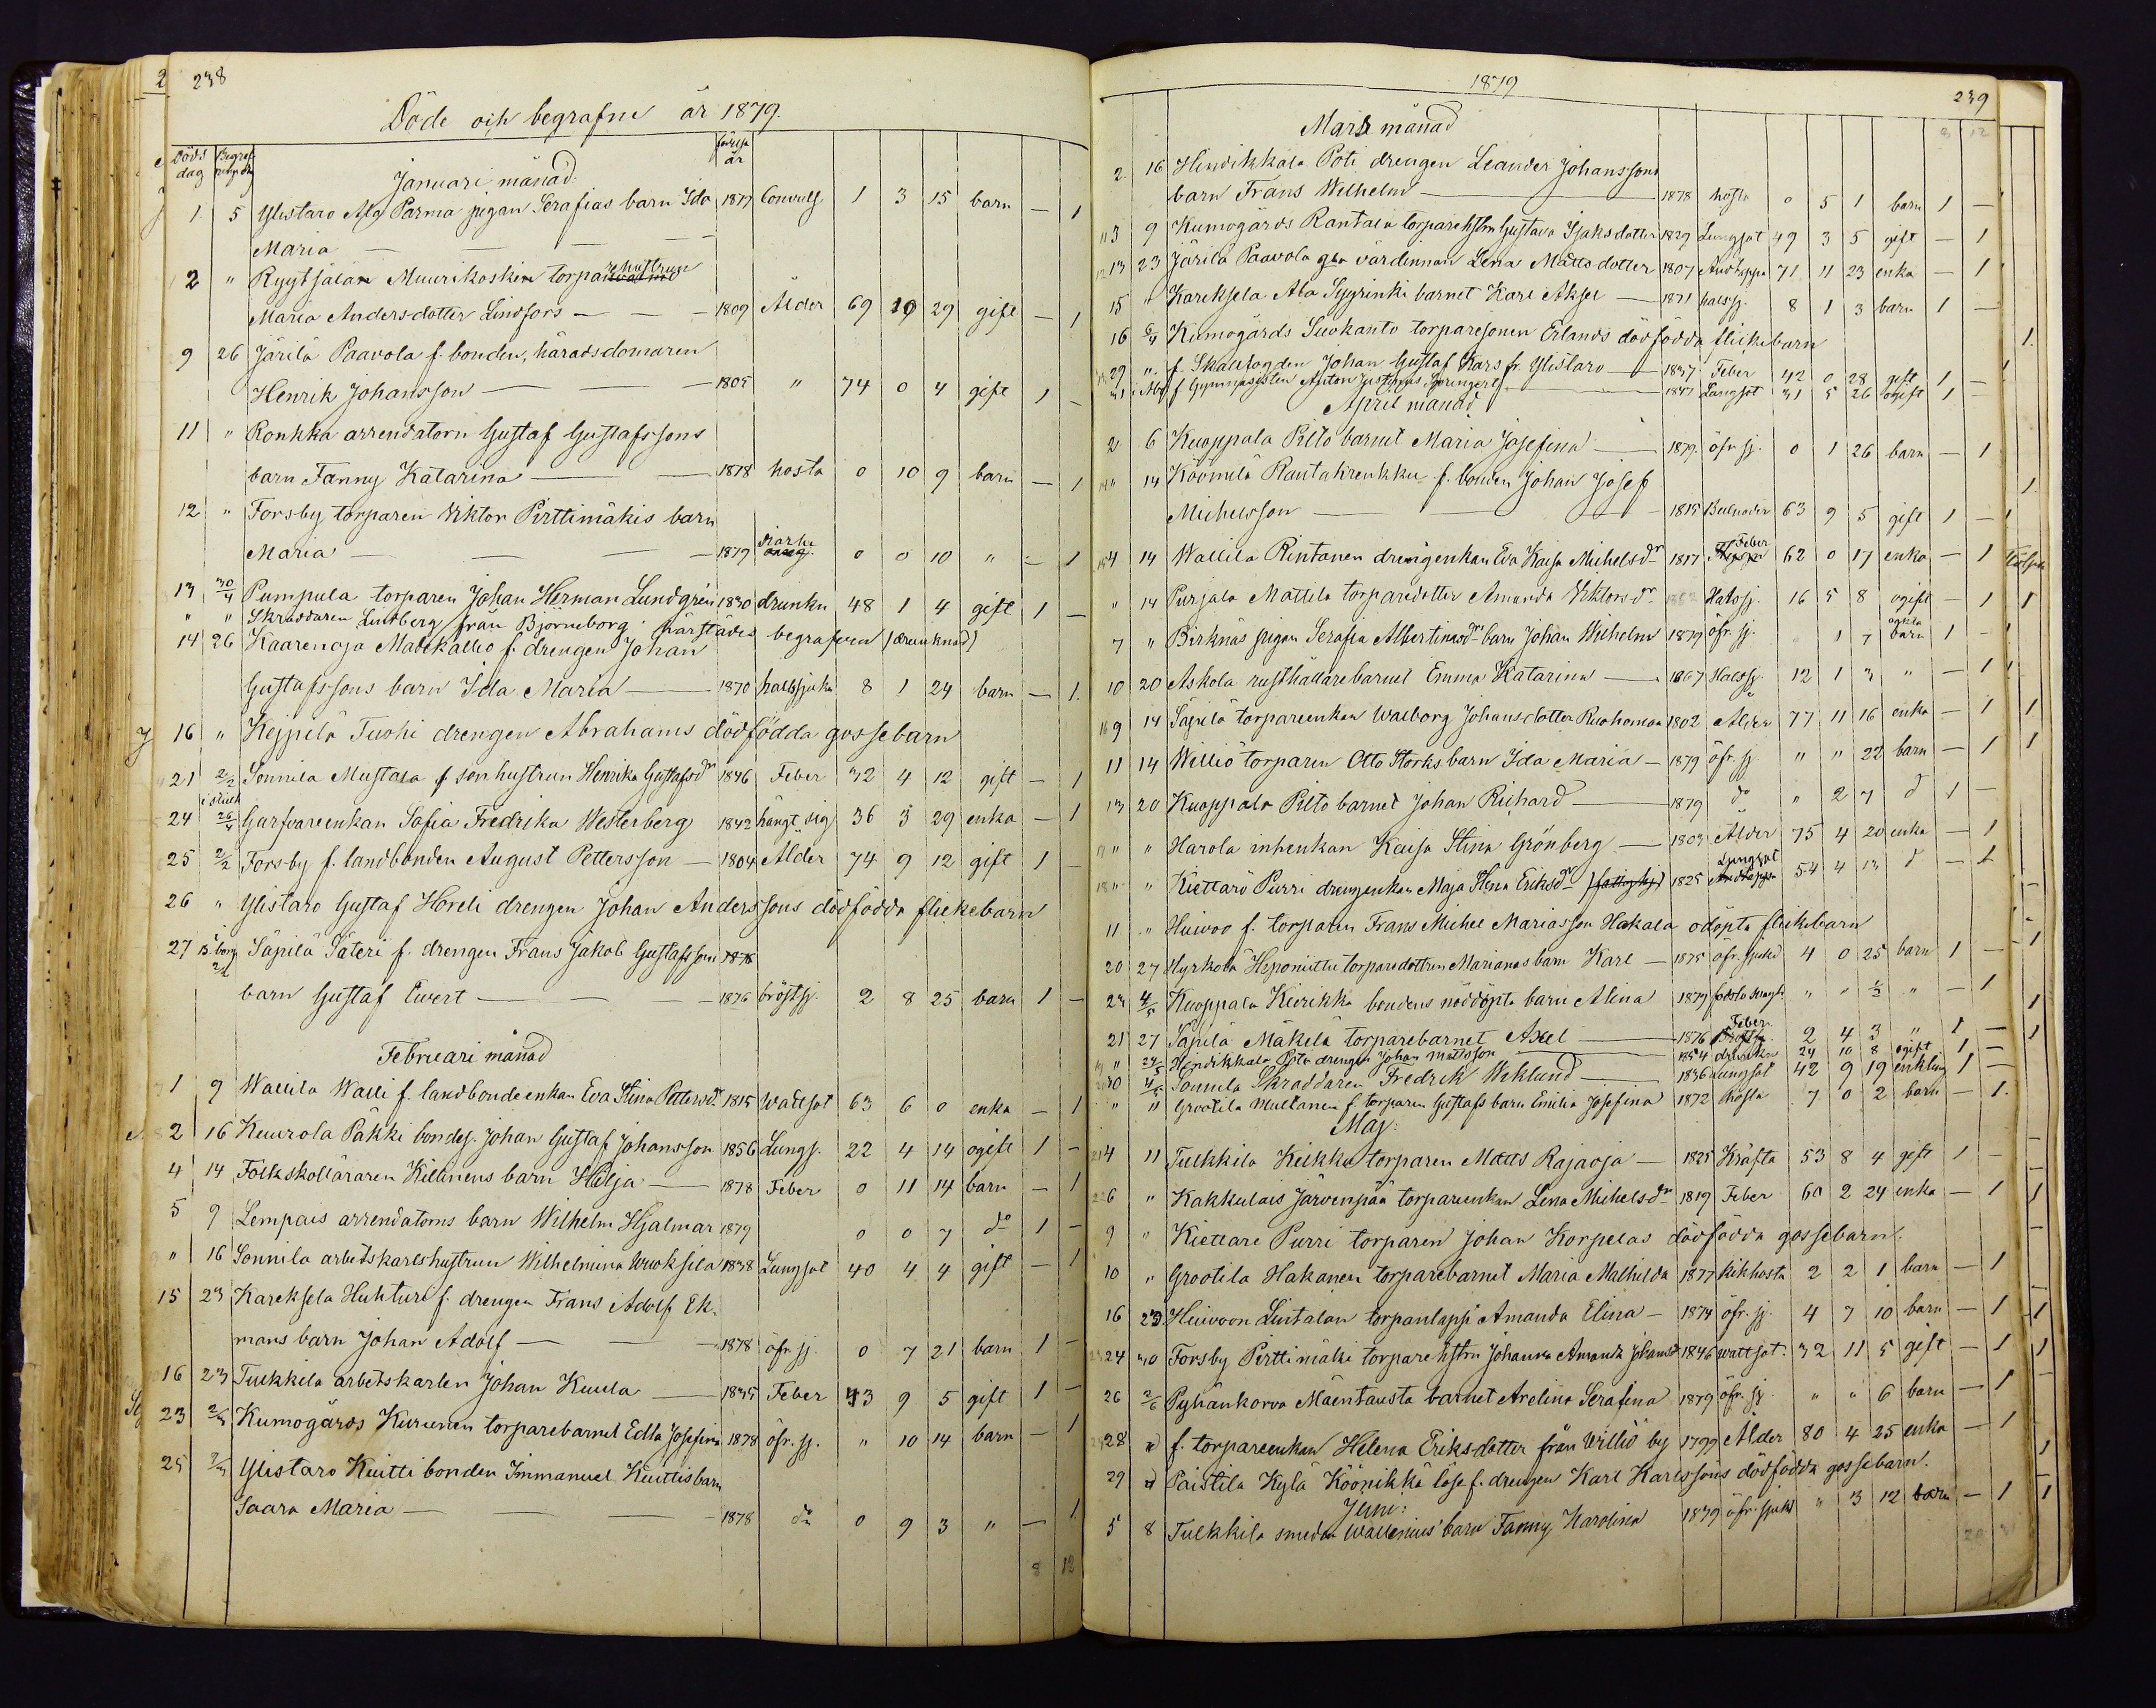 238
Döde och begrafne år 1879.
Döds dag Begrafnings dag födelse år
Januari månad.
1. 5 Ylistaro Ala Parma pigan Serafias barn Ida 1877 Convuls. 1 3 15 barn — 1
Maria — — —
2 " Ryytsälän Muurikosken torparehustrun
Maria Andersdotter Lindfors — — 1809 Ålder 69 10 29 gift — 1
9 26 Järilä Paavola f. bonden, häradsdomaren
Henrik Johansson — — — 1805 " 74 0 4 gift 1 —
11 " Ronkka arrendatorn Gustaf Gustafssons
barn Fanny Katarina — — 1878 hosta 0 10 9 barn — 1
12 " Forsby torparen Viktor Pirttimäkis barn
Maria — — — 1879 0 0 10 " — 1
13 30/4 Pumpula torparen Johan Herman Lundgrén 1830 drunkn 48 1 4 gift 1 —
" " Skräddaren Lindberg från Björneborg härstädes begrafven (drunknad)
14 26 Kaarenoja Matikallio f. drengen Johan
Gustafssons barn Ida Maria — 1870 halssjuka 8 1 24 barn — 1.
16 " Keipilä Tuohi drengen Abrahams dödfödda gossebarn
21 2/2 Sonnila Mustala f sonhustrun Henrika Gustafsdr 1846 Feber 32 4 12 gift — 1
24 26/4 Garfvareenkan Sofia Fredrika Westerberg 1842 hängt sig 36 3 29 enka — 1
25 2/2 Forsby f. landbonden August Pettersson — 1804 Ålder 74 9 12 gift 1 —
26 " Ylistaro Gustaf Horeli drengen Johan Anderssons dödfödda flickebarn
27 B:borg 2/2 Säpilä Säteri f. drengen Frans Jakob Gustafssons 1876
barn Gustaf Evert — — — 1876 bröstsj. 2 8 25 barn 1 —
Februari månad
1 9 Wallila Walli f. landbondeenkan Eva Stina Pettersdr 1815 Wattsot 63 6 0 enka — 1
2 16 Keurola Pākki bondes. Johan Gustaf Johansson 1856 Lungs. 22 4 14 ogift 1 —
4 14 Folkskolläraren Killinens barn Hilja — 1878 Feber 0 11 14 barn — 1
5 9 Lempais arrendatorns barn Wilhelm Hjalmar 1879 0 0 7 do 1 —
" 16 Sonnila arbetskarlshustrun Wilhelmina Wuoksila 1838 Lungsot 40 4 4 gift — 1
15 23 Kareksela Huhture f. drengen Frans Adolf Ek-
mans barn Johan Adolf — — — 1878 öfr. sj. 0 7 21 barn 1 —
16 23 Tulkkila arbetskarlen Johan Kuula — 1835 Feber 43 9 5 gift 1 —
23 2/3 Kumogårds Kurunen torparebarnet Edla Josefina 1878 öfr. sj. " 10 14 barn — 1
25 2/3 Ylistaro Kuitti bonden Immanuel Kuittis barn
Saara Maria — — — 1878 do 0 9 3 " — 1
8 12
1879
239
Mars månad
2. 16 Hindikkala Poti drengen Leander Johanssons
barn Frans Wilhelm — 1878 hosta 0 5 1 barn 1 —
3 9 Kumogårds Rantala torparehstrn Gustava Isaksdotter 1829 Lungsot 49 3 5 gift — 1
13 23 Järilä Paavola gla värdinnan Lena Mattsdotter 1807 Andtäppa 71 11 23 enka — 1
15 " Kareksela Ala Syyrinki barnet Karl Aksel — 1871 halssj. 8 1 3 barn 1 —
16 6/4 Kumogårds Suokanto torparesonen Erlands dödfödda flickebarn
29 " f. Skallfogden Johan Gustaf Kars fr. Ylistaro — 1837 Feber 42 0 28 gift 1 —
31 f Gymnasisten Anton Justinus Sprengert 1847 Lungsot 31 5 26 ogift 1 —
April månad
2. 6 Kuoppala Pilto barnet Maria Josefina — 1879. öfr sj. 0 1 26 barn — 1
" 14 Köömilä Rantakrenkku f. bonden Johan Josef
Michelsson — — 1815 63 9 5 gift 1 —
4 14 Wallila Rintanen drengenkan Eva Kaisa Michelsdr 1817 Feber 62 0 17 enka — 1
" 14 Purjala Mattila torparedotter Amanda Viktorsdr 1862 Halssj. 16 5 8 ogift — 1
7 " Birknäs pigan Serafia Albertinasdrs barn Johan Wilhelm 1879 öfr. sj. " 1 7 oäkta barn 1 —
10 20 Askola rusthållarebarnet Emma Katarina — 1867 Halssj. 12 1 3 " — 1
9 14 Säpilä torpareenkan Walborg Johansdotter Ruohomaa 1802 Ålder 77 11 16 enka — 1
11 14 Williö torparen Otto Storks barn Ida Maria — 1879 öfr. sj " " 22 barn — 1
13 20 Kuoppala Pilto barnet Johan Richard — 1879 do " 2 7 d 1 —
" " Harola inhenkan Kaisa Stina Grönberg — 1803 Ålder 75 4 20 enka — 1
" " Kiettarö Purri drengenkan Maja Stena Eriksdr (fattighj) 1825 Lungsot 54 4 13 d — 1
11 " Huivoo f. torparen Frans Michel Mariasson Hakala odöpta flickebarn
20 27 Hyrkölä Heponiittu torparedottren Marianas barn Karl — 1875 öfr. sjukd 4 0 25 barn 1 —
23 4/5 Kuoppala Kiirikka bondens nöddöpta barn Alina 1879 " " 1/2 " — 1
21 27 Säpilä Mäkelä torparebarnet Axel — 1876 Feber 2 4 3 " 1 —
" 24/5 Hindikkala Pota drengen Johan Mattsson 1854 drunkn 24 10 8 ogift 1 —
30 4/5 Sonnila Skräddaren Fredrik Wiklund — 1836 Lungsot 42 9 19 enkling 1 —
" 11 Grootila Multanen f. torparen Gustafs barn Emilia Josefina 1872 hosta 7 0 2 barn — 1.
Maj:
4 11 Tulkkila Keikku torparen Matts Rajaoja — 1825 Kräfta 53 8 4 gift 1 —
6 " Kakkulais Järvenpää torpareenkan Lena Michelsdr 1819 Feber 60 2 24 enka — 1
9 " Kiettare Purri torparen Johan Korpelas dödfödda gossebarn.
10 " Grootila Hakanen torparebarnet Maria Mathilda 1877 kikhosta 2 2 1 barn — 1
16 23 Huivoon Lintalan torpanlapsi Amanda Elina — 1874 öfr. sj. 4 7 10 barn — 1
24 30 Forsby Pirttimäki torpare hstru Johanna Amanda Johansdr 1846 wattsot. 32 11 5 gift — 1
26 2/6 Pyhänkorva Mäentausta barnet Avelina Serafina 1879 öfr. sj " " 6 barn — 1
28 " f. torpareenkan Helena Eriksdotter från Williö by 1799 Ålder 80 4 25 enka — 1
29 " Paistila Kylä Köönikkä löse f. drengen Karl Karlssons dödfödda gossebarn.
Juni:
5 8 Tulkkila smeden Wallenius' barn Fanny Karolina 1879 öfr. sjukd " 3 12 barn — 1